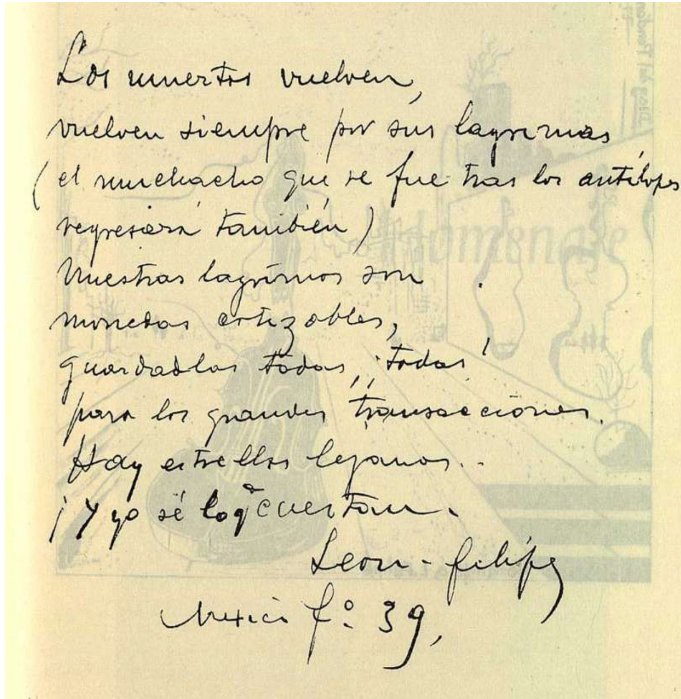 Los muertos vuelven,
vuelven siempre por sus lagrimas
(el muchacho que se fue tras los antílopes
regresará también)
Nuestras lagrimas son
monedas cotizables,
guardadlas todas, ¡todas!
para las grandes transacciones.
Hay estrellas lejanas..
¡Y yo sé lo q cuestan.
León-Felipe
Mexico f.º 39,
Homenaje